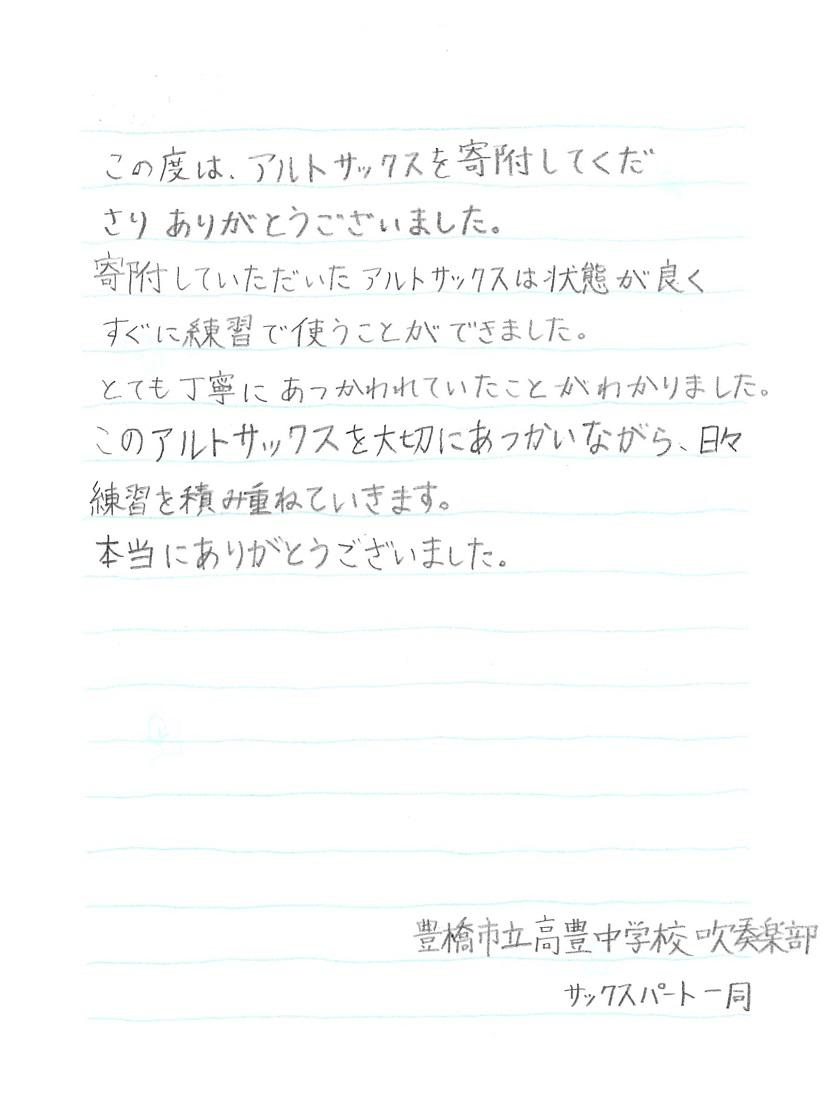 この度は、アルトサックスを寄附してくだ
さり ありがとうございました。
寄附していただいた アルトサックスは状態が良く
すぐに練習で使うことができました。
とても丁寧に あつかわれていたことがわかりました。
このアルトサックスを大切にあつかいながら、日々
練習を積み重ねていきます。
本当にありがとうございました。
豊橋市立高豊中学校 吹奏楽部
サックスパート一同